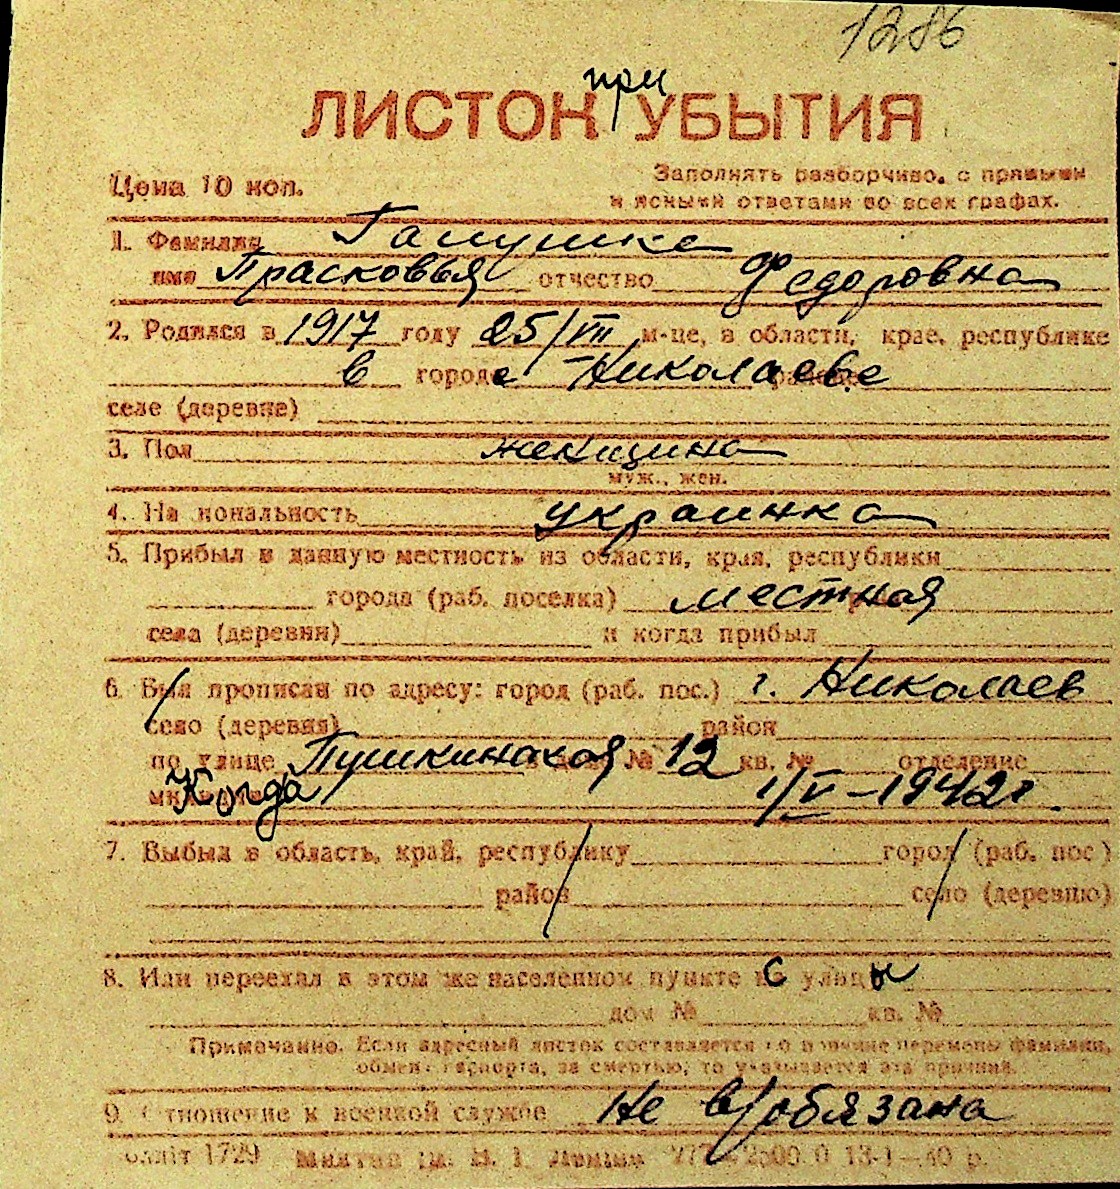 1286
при
ЛИСТОК УБЫТИЯ
Цена 10 коп.
Заполнять разборчиво, с прямыми
и ясными ответами во всех графах.
1. Фамилия Галушка
имя Прасковья отчество Федоровна
2. Родился в 1917 году 25/VII м-це, в области, крае, республике
в городе Николаеве
селе (деревне)
3. Пол женщина
муж., жен.
4. Национальность украинка
5. Прибыл в данную местность из области, края, республики
города (раб. поселка) местная
села (деревни) и когда прибыл
6. Был прописан по адресу: город (раб. пос.) г. Николаев
село (деревня) район
по улице Пушкинская дом № 12 кв. № отделение
Когда 1/V-1942 г.
7. Выбыл в область, край, республику город (раб. пос)
район село (деревню)
8. Или переехал в этом же населенном пункте с улицы
дом № кв. №
Примечание. Если адресный листок составляется по причине перемены фамилии,
обмена паспорта, за смертью, то указывается эта причина.
9. Отношение к военной службе не в/обязана
1729